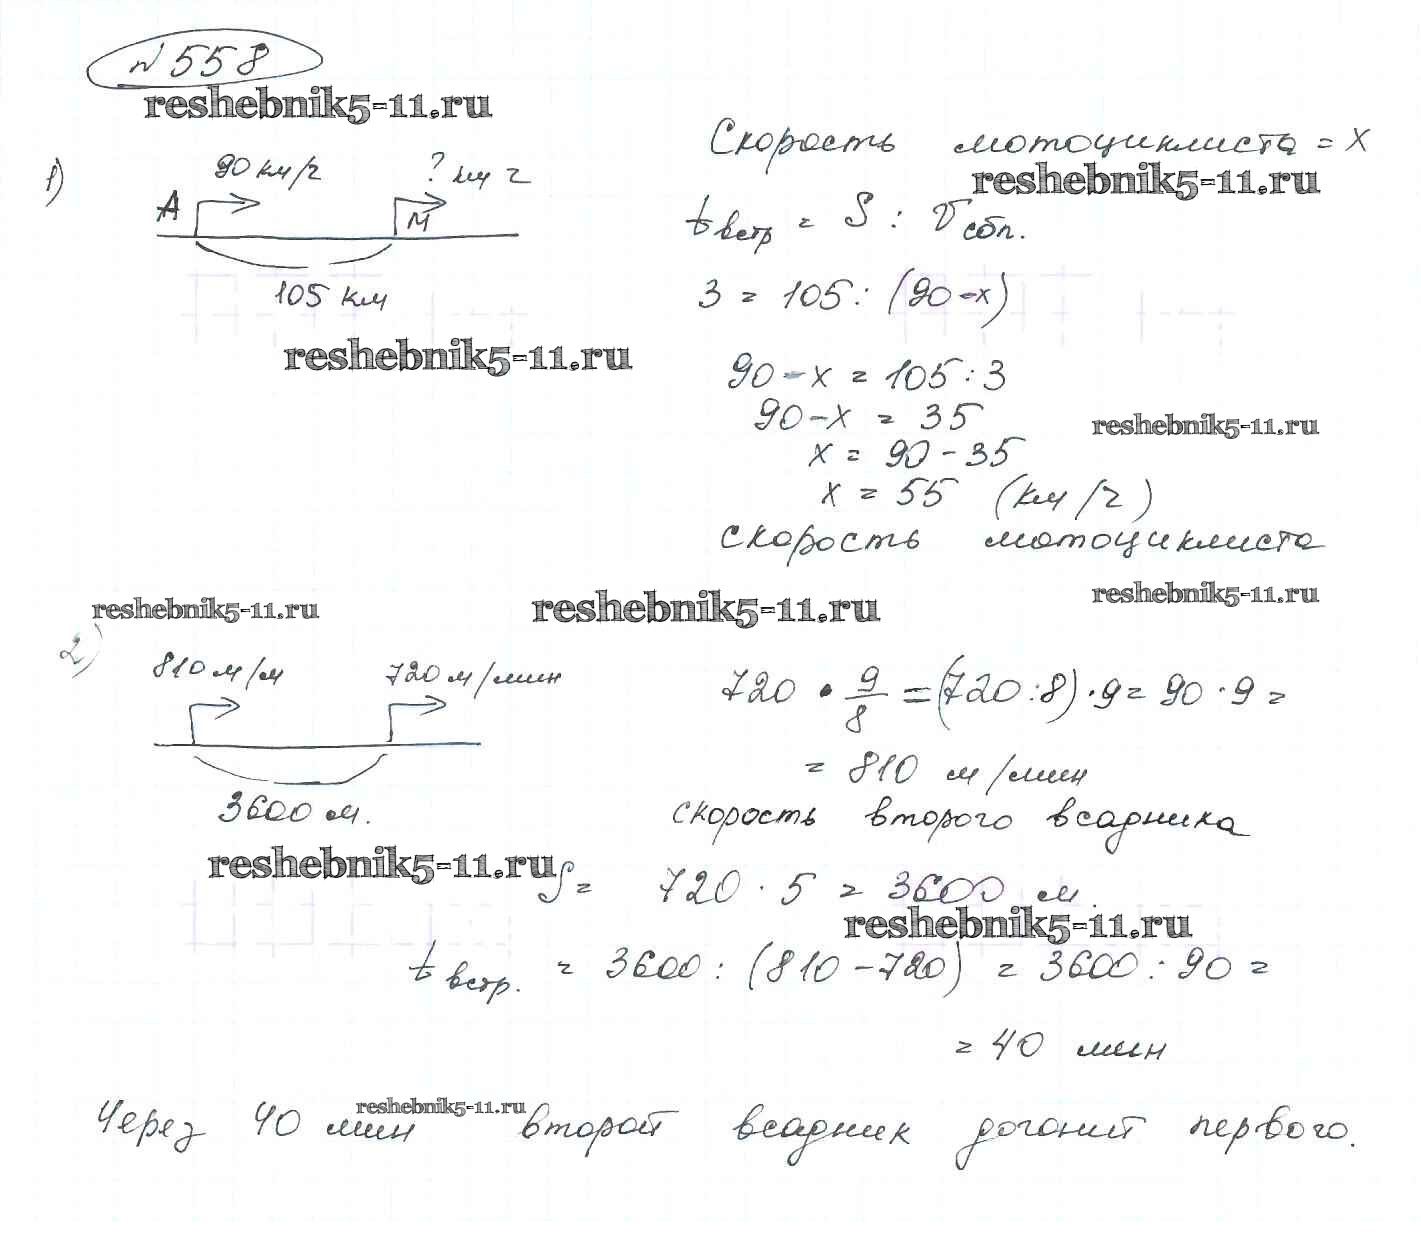 № 558
reshebnik5-11.ru
1)
90 км/ч
? км ч
А
М
105 км
reshebnik5-11.ru
Скорость мотоциклиста = х
reshebnik5-11.ru
t встр = S : V сбл.
3 = 105 : (90 - х)
90 - х = 105 : 3
90 - х = 35
reshebnik5-11.ru
х = 90 - 35
х = 55 (км/ч)
скорость мотоциклиста
reshebnik5-11.ru
reshebnik5-11.ru
reshebnik5-11.ru
2)
810 м/м
720 м/мин
3600 м.
720 · 9/8 = (720 : 8) · 9 = 90 · 9 =
= 810 м/мин
скорость второго всадника
reshebnik5-11.ru
S = 720 · 5 = 3600 м.
reshebnik5-11.ru
t встр. = 3600 : (810 - 720) = 3600 : 90 =
= 40 мин
reshebnik5-11.ru
Через 40 мин второй всадник догонит первого.